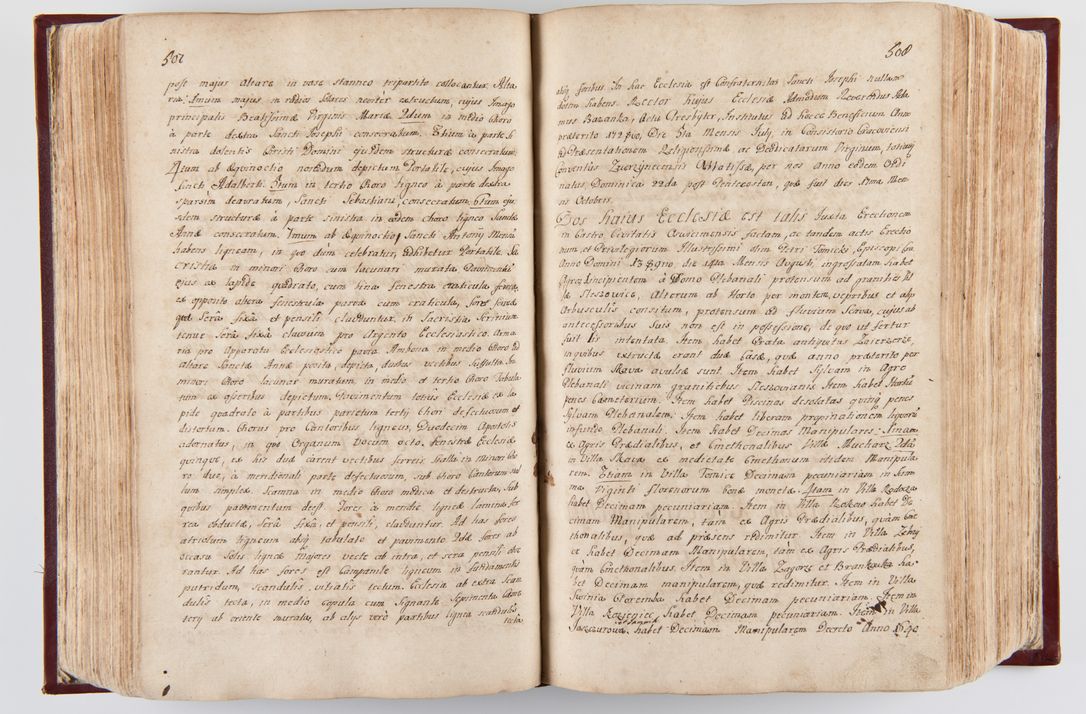 507
post majus altare in vase stanneo tripartito collocantur. Alta
ria. Imum majus in radios solares noviter extructum, cujus Imago
principalis Beatissimæ Virginis Mariæ. 2dum in medio Choro
à parte dextra Sancti Josephi consecratum. 3tium à parte si
nistra dolentis Christi Domini ejusdem structuræ consecratum
4tum ab æquinoctio noviter depictum Portatile, cujus Imago
Sancti Adalberti. 5tum in tertio Choro ligneo à parte dextra
sparsim deauratum, Sancti Sebastiani consecratum. 6tum ejus
dem structuræ à parte sinistra in eodem choro ligneo Sanctæ
Annæ consecratum. 7mum ab æquinoctio Sancti Antonij Mensam
habens ligneam, in quo dum celebratur, adhibetur Portatile. Sa
cristia in minori Choro cum lacunari murata. Pavimentum
ejus ex lapide quadrato, cum bina fenestra craticula ferrea
ex opposito altera fenestrula parva cum craticula, fores ferreæ
quæ Serâ fixâ et pensili clauduntur. in Sacristia Scrinium
tenue Serâ fixâ clausum pro Argento Ecclesiastico. Arma
ria pro Apparatu Ecclesiastico parva Ambona in medio Choro ad
altare Sanctæ Annæ posita, depicta, duobus vectibus suffulta. In
minori Choro lacunar muratum in medio et tertio Choro Tabula
tum ex asseribus depictum. Pavimentum totius Ecclesiæ ex la
pide quadrato à partibus parietum tertij Chori defectuosum et
distortum. Chorus pro Cantoribus ligneus, Duodecim Apostolis
adornatus, in quo Organum Vocum octo. Fenestræ Ecclesiæ
quinque, ex his duæ carent vectibus ferreis. Stalla in minori Cho
ro duo, à meridionali parte defectuosum, sub Choro Cantorum stal
lum simplex. Scamna in medio Choro modica et destructa, sub
quibus pavimentum deest. Fores à meridie ligneæ lamina fer
rea obductæ, Serâ fixâ et pensili, clauduntur. Ad has fores
atriolum ligneum absq tabulato et pavimento. 2dæ fores ab
occasu Solis ligneæ majores vecte ab intra, et sera pensili obse
rantur. Ad has fores est Campanile ligneum in fundamentis
putridum, scandulis vitiatis tectum. Ecclesia ab extra scan
dulis tecta, in medio copula cum signante. Sepimenta Cæme
terij ab oriente murata, ab alijs verò partibus lignea scandulis
tecta
508
absq foribus. In hac Ecclesia est Confraternitas Sancti Josephi nullam
dotem habens. Rector hujus Ecclesiæ Admodum Reverendus Ada
mus Bazanka, Actu Presbyter, Institutus ad hocce Beneficium Anno
præterito 1728vo, Die 5ta Mensis July, in Consistorio Cracoviensi
ad Præsentationem Religiosissimæ ac Dedicatarum Virginum, totiusq
Conventus Zwerzyncensis Abbatissæ, per nos anno eodem Ordi
natus, Dominica 22da post Pentecosten, quæ fuit dies 8tma Men
sis Octobris.
Dos hujus Ecclesiæ est talis Juxta Erectionem
in Castro Civitatis Oswiemensis factam, ac tandem actis Erectio
num et Privilegiorum Illustrissimi olim Petri Tomicki, Episcopi Cra
Anno Domini 1389no, die 14ta Mensis Augusti, ingrossatam habet
Agros, Incipientem à Domo Plebanali protensum ad granities Vil
læ Sleszowice, Alterum ab Horto per montem, vepribus et alijs
Arbusculis consitum, protensum ad fluvium Scawa, cujus ab
antecessoribus suis non est in possessione, de quo ut fertur
fuit lis intentata. Item habet Prata antiquitus Zaierzerze,
in quibus extructæ erant duæ Casæ, quæ anno præterito per
fluvium Skawa avulsæ sunt. Item habet Sylvam in Agro
Plebanali vicinam granitiebus Sleszovianis. Item habet Hortum
penes Cæmeterium. Item habet Piscinas desolatas quinq penes
Sylvam Plebanalem. Item habet liberam propinationem liquorum
in fundo Plebanali. Item habet Decimas Manipulares: Imam
ex Agris Prædialibus, et Cmethonalibus Villæ Mucharz. 2dam
in Villa Skawa ex medietate Cmethonum itidem Manipula
rem. 3tiam in Villa Tomice Decimam pecuniariam in Sum
ma Viginti Florenorum bonæ monetæ. 4tam in Villa Radocza
habet Decimam pecuniariam. Item in Villa Rokow habet De
cimam Manipularem, tàm ex Agris Prædialibus, quàm Cme
thonalibus, quæ ad præsens redimitur. Item in Villa Zebij
ce habet Decimam Manipularem, tàm ex Agris Prædialibus,
quàm Cmethonalibus. Item in Villa Zagorz et Brankowka ha
bet Decimam manipularem, quæ redimitur. Item in Villa
Swinia Poremba habet Decimam pecuniariam. Item in
Villa Koziniec habet Decimam pecuniariam. Item in Villa
Jaszczurowa habet Decimam Manipularem Decreto Anno 1640